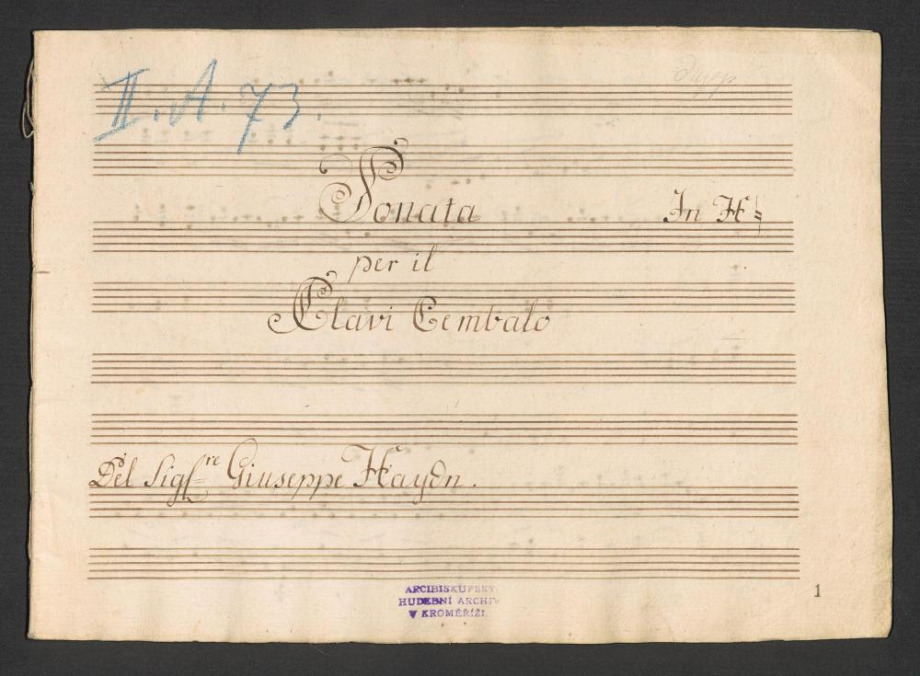 II. A. 73.
Sonata In H♮
per il
Clavi Cembalo
Del Sigl:re Giuseppe Haydn.
ARCIBISKUPSKÝ
HUDEBNÍ ARCHIV
V KROMĚŘÍŽI.
1